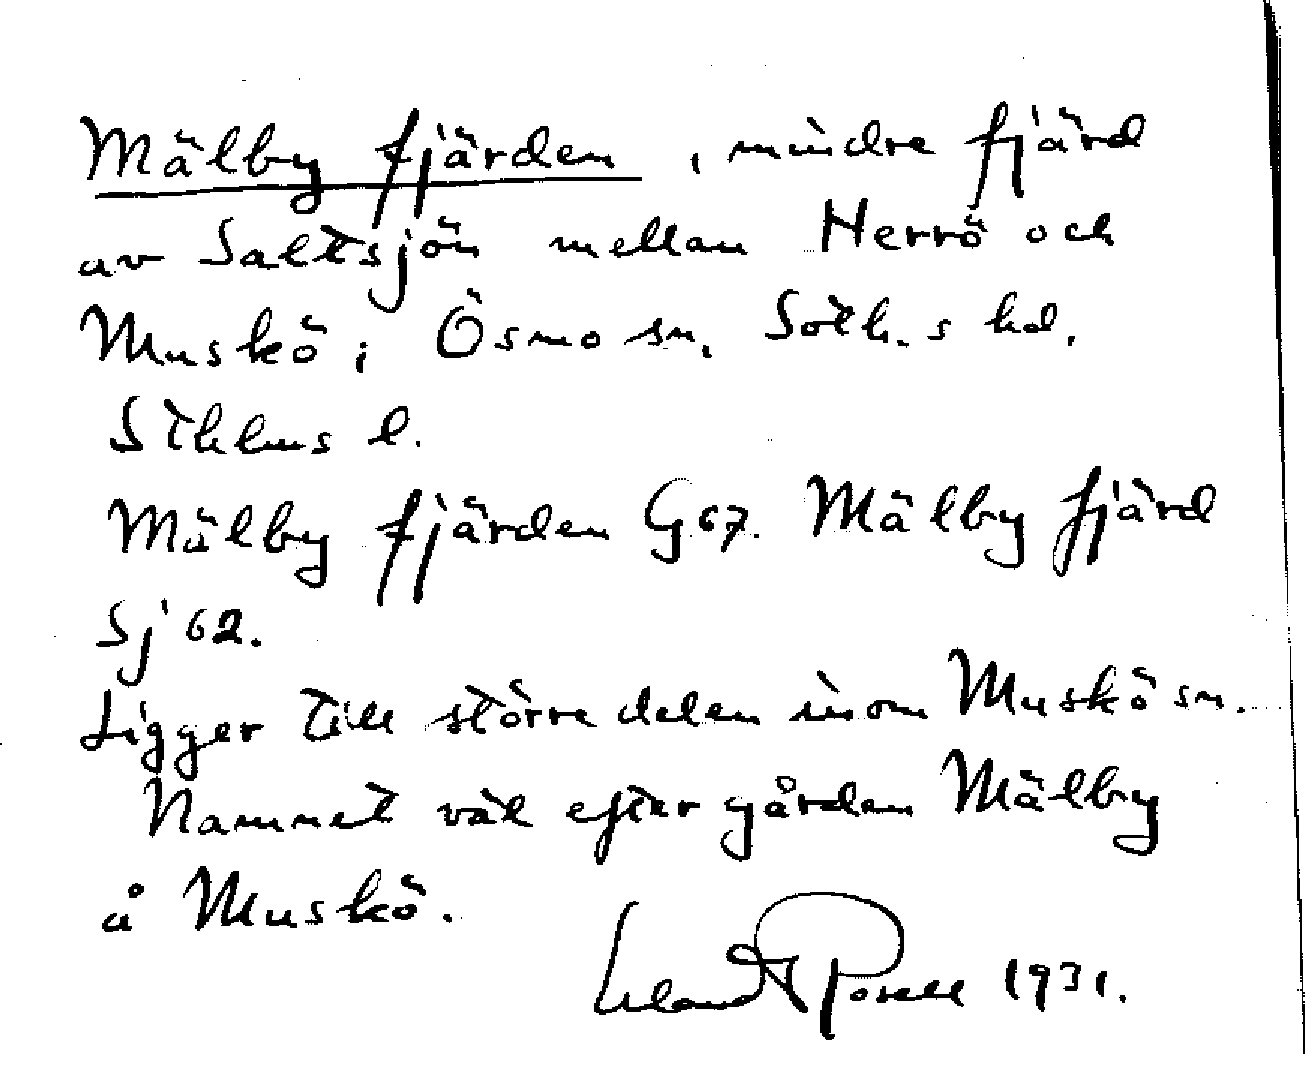 Mälby fjärden, mindre fjärd
av Saltsjön mellan Herrö och
Muskö i Ösmo sn. Soth.s hd.
Sthlms l.
Mälby fjärden G 67. Mälby fjärd
Sj 62.
Ligger till större delen inom Muskö sn.
Namnet väl efter gården Mälby
å Muskö.
1931.